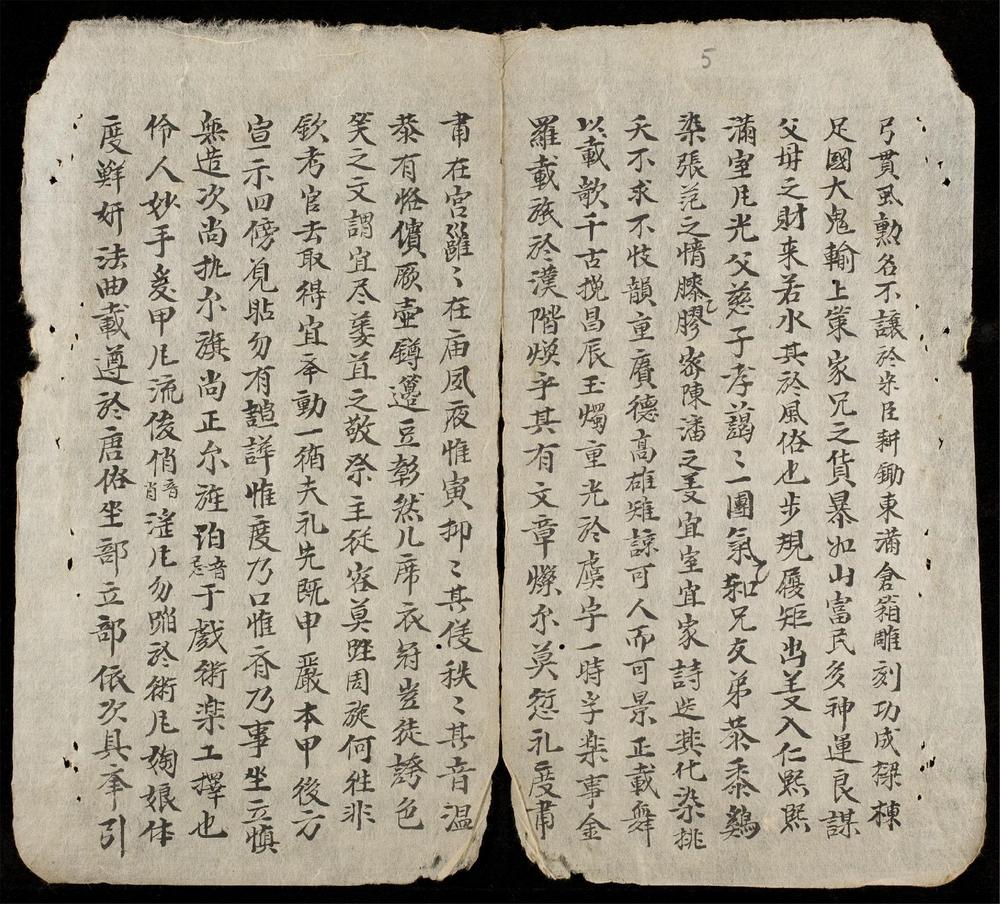 5
弓貫虱勲名不讓於宋臣耕鋤東滿倉箱雕刻功成樑棟
足國大鬼輸上策家兄之貨暴如山富民多神運良謀
父母之財来若水其於風俗也步規履矩出義入仁熙熙
滿室凡光父慈子孝藹〻一團氣和兄友弟恭黍鷄
染張范之情膝膠密陳潘之義宜室宜家詩迯興化染挑
夭不求不忮韻重賡德高雄雉諒可人而可景正載舞
以載歌千古挽昌辰玉燭重光於虞宇一時字楽事金
羅載旅於漢階煥乎其有文章燦尔莫愆礼度肅
肅在宮雝〻在庙夙夜惟寅抑〻其仪秩〻其音温
恭有恪儐厥壺罇籩豆彰然几席衣冠豈徒誇色
笑之文謂宜尽萎苴之敬祭主從容莫踁周旋何徃非
欽考官去取得宜夲動一循夫礼先既申嚴本甲後方
宣示四傍覓貼勿有諠譁惟度乃口惟斉乃事坐立慎
無造次尚挑尔旗尚正尔旌洎音忌于戯術楽工擇也
伶人妙手爰甲凡流俊俏音肖滛凡勿蹈於術凡婅娘体
度鮮妍法曲載遵於唐俗坐部立部依次具夲引